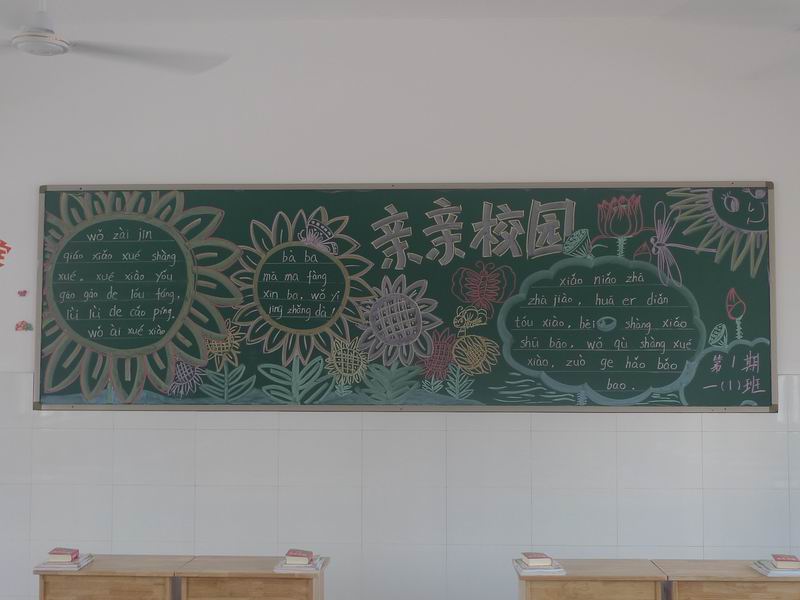 亲亲校园
wǒ zài jīn
qiáo xiǎo xué shàng
xué, xué xiào yǒu
gāo gāo de lóu fáng,
lǜ lǜ de cǎo píng,
wǒ ài xué xiào
bà ba
mā ma fàng
xīn ba, wǒ yǐ
jīng zhǎng dà!
xiǎo niǎo zhā
zhā jiào, huā er diǎn
tóu xiào, bēi shàng xiǎo
shū bāo, wǒ qù shàng xué
xiào, zuò ge hǎo bǎo
bao.
第1期
一(1)班